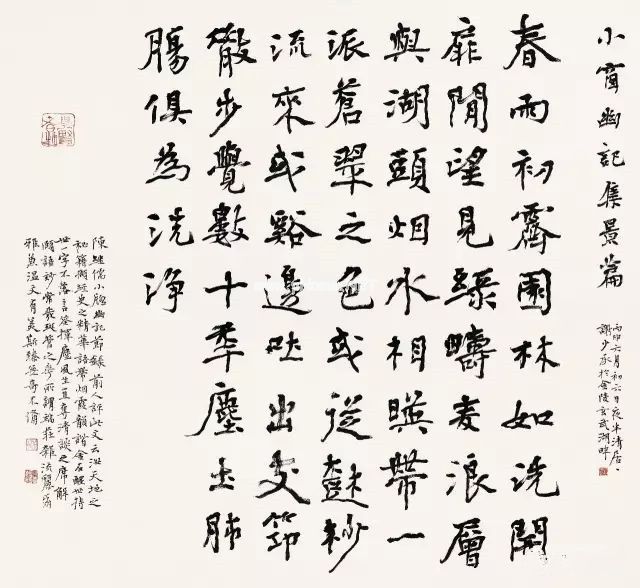 小窗幽記集景篇
丙申六月初六日夜半清居
謝少承於金陵玄武湖畔
春雨初霽園林如洗開
扉閒望見綠疇麥浪層
與湖頭烟水相暎帶一
派蒼翠之色或從杪
流來或谿邊吐出支筇
散步覺數十年塵土肺
腸俱為洗淨
陳繼儒小牕幽記節錄前人評此文云泄天地之
秘籍擷經史之精華語帶烟霞韻諧金石醒世持
世一字不落言筌揮麈風生直奪清談之席解
頤語妙常發斑管之所謂端莊雜流麗爾
雅兼溫文有美斯臻無奇不備